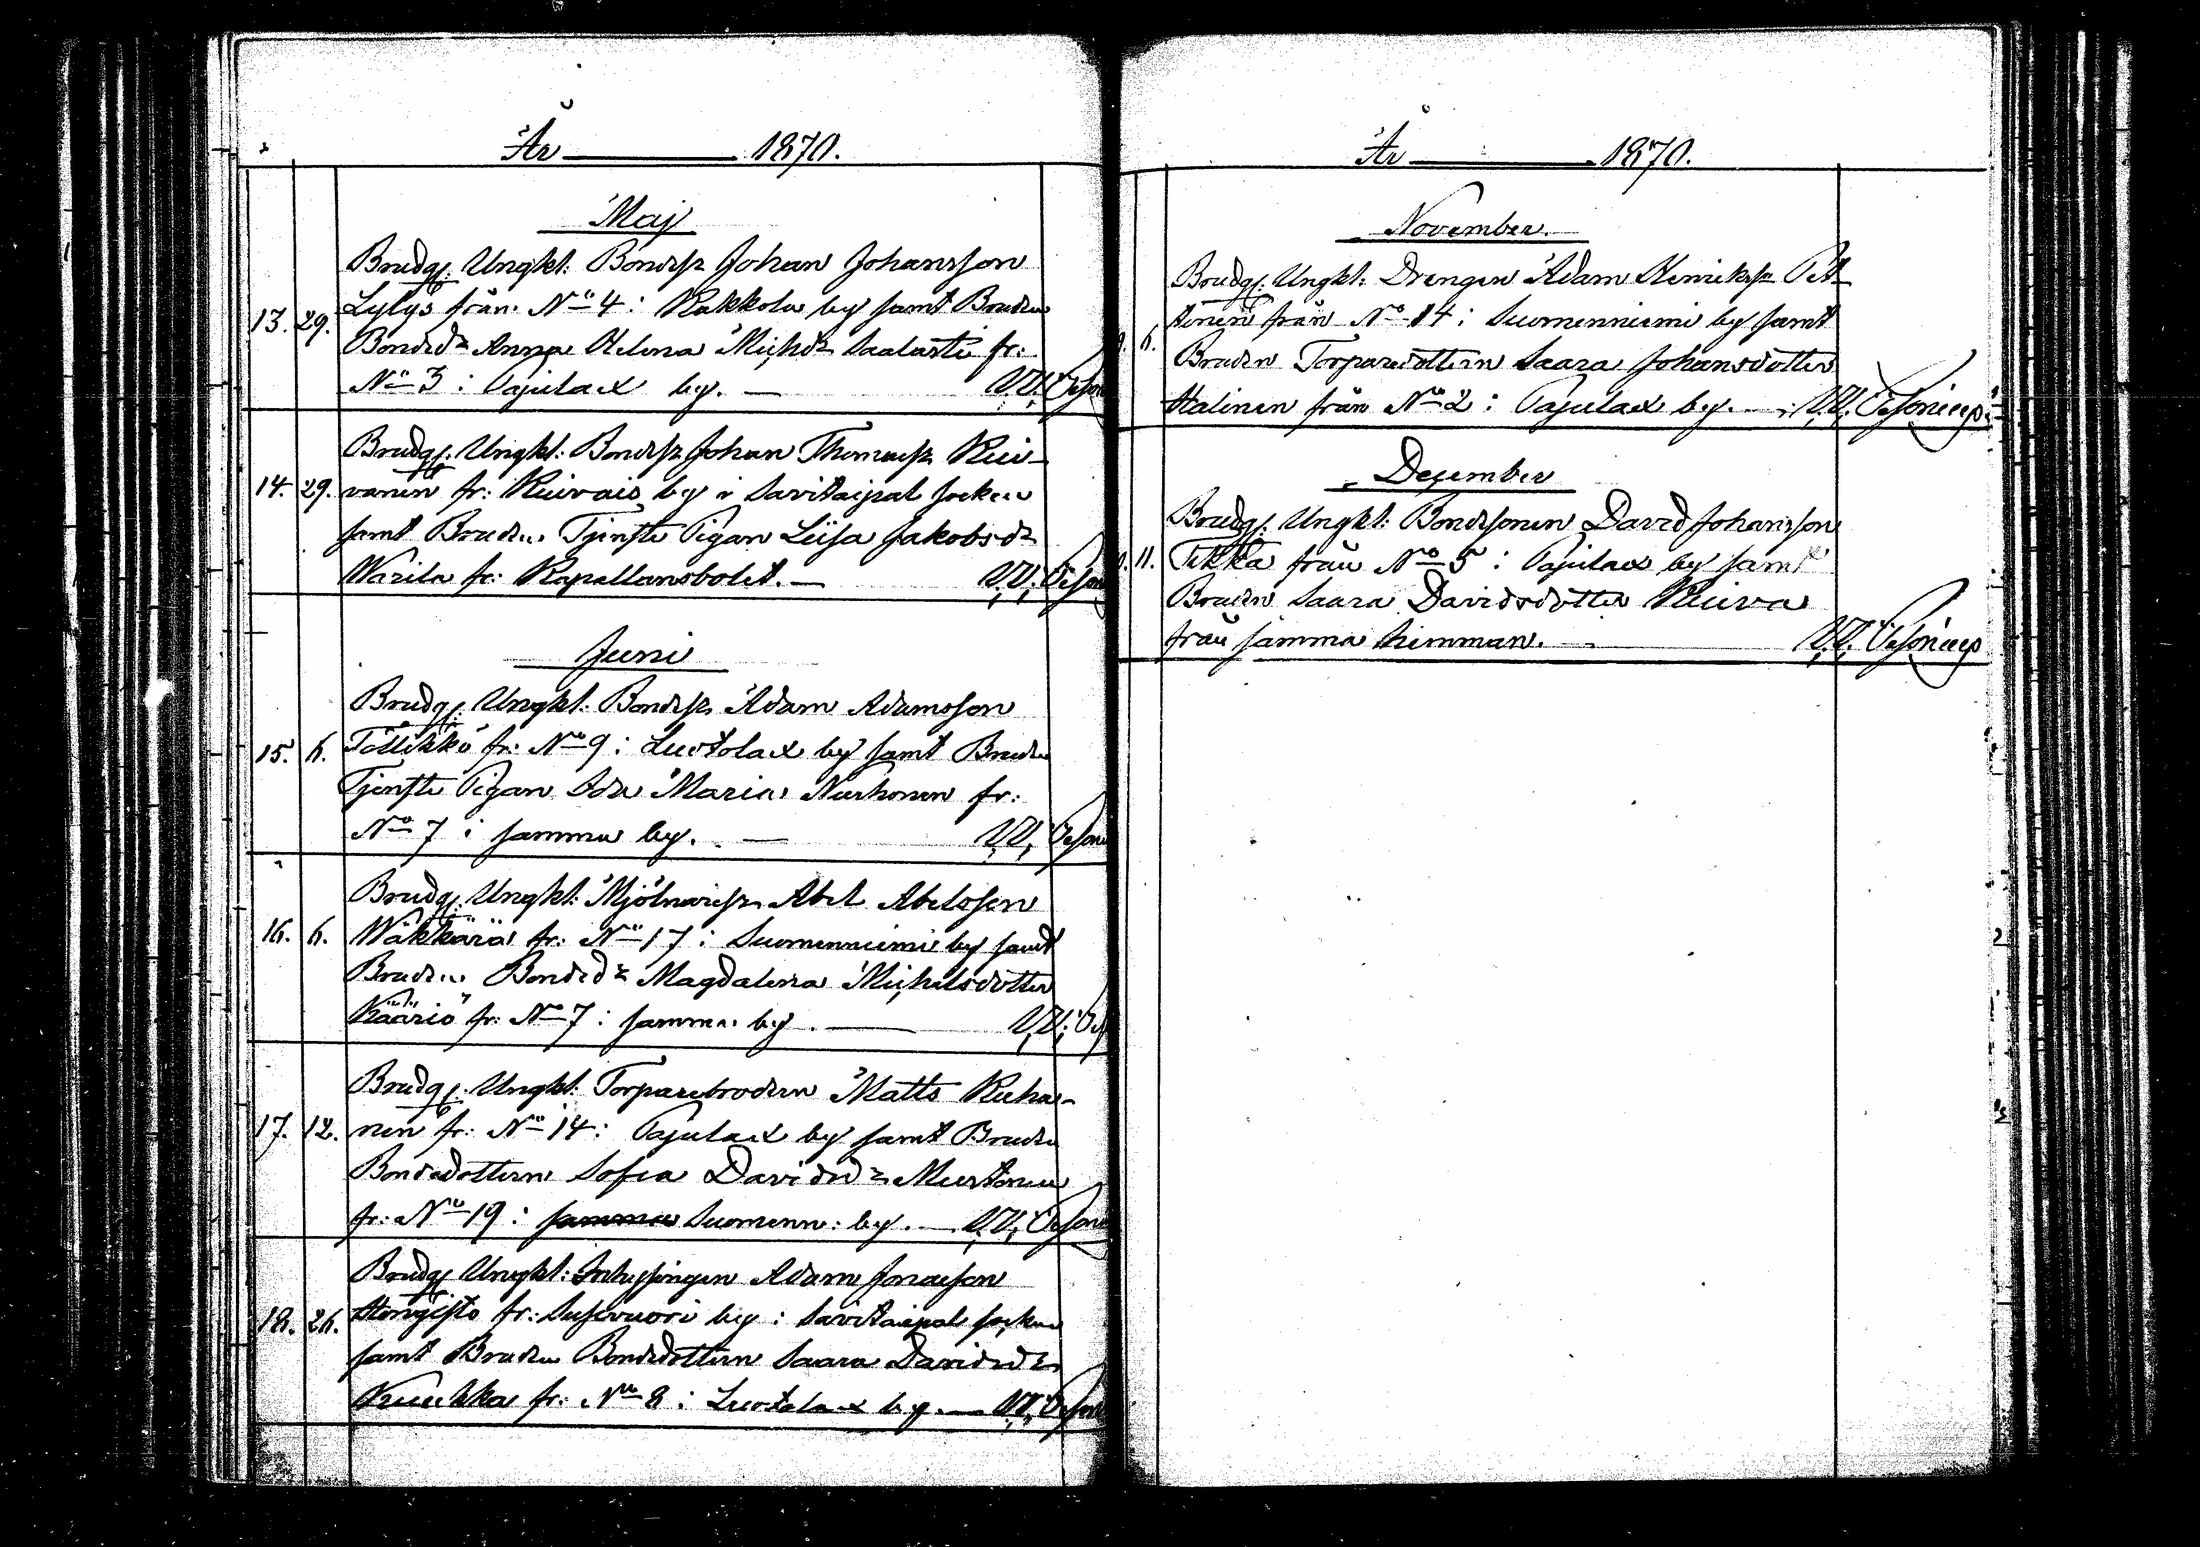 År 1870.
Maj
13. 29. Brudg. Ungkl: Bondes: Johan Johansson
Lylys från No 4: Kakkola by samt Bruden
Bonded: Anna Helena Michsd: Saalasti fr:
No 3: Pajulax by. — V.V.
14. 29. Brudg. Ungkl: Bondes: Johan Thomass: Kui-
vanen fr: Kuivais by i Savitaipal socken
samt Bruden Tjenste Pigan Liisa Jakobsd:
Warila fr: Kapellansbolet. — V.V.
Juni
15. 6. Brudg. Ungkl: Bondes: Adam Adamsson
Töllikkö fr: No 9: Luotolax by samt Bruden
Tjenste Pigan Ida Maria Nurhonen fr:
No 7 i samma by. — V.V.
16. 6. Brudg. Ungkl: Mjölnares: Abel Abelsson
Wäkkärä fr: No 17: Suomenniemi by samt
Bruden Bonded: Magdalena Michelsdotter
Kääriö fr: No 7: samma by. — V.V.
17. 12. Brudg. Ungkl: Torparebrodern Matts Kuha-
nen fr: No 14: Pajulax by samt Bruden
Bondedottern Sofia Davidsd: Murtonen
fr: No 19: samma Suomenn: by. — V.V.
18. 26. Brudg. Ungkl: Inhysingen Adam Jonasson
Hongisto fr: Susivuori by: Savitaipal socken
samt Bruden Bondedottern Saara Davidsd:
Kuukka fr: No 8: Luotolax by. — V.V.
År 1870.
November.
6. Brudg. Ungkl: Drengen Adam Henrikss: Pet-
tonen från No 14: Suomenniemi by samt
Bruden Torparedottern Saara Johansdotter
Halinen från No 2: Pajulax by. — V.V.
December
11. Brudg. Ungkl: Bondesonen David Johansson
Tikka från No 5: Pajulax by samt
Bruden Saara Davidsdotter Kuiva
från samma hemman. — V.V.